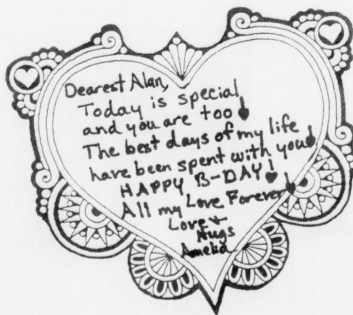 Dearest Alan,
Today is special
and you are too
The best days of my life
have been spent with you
HAPPY B-DAY!
All my Love Forever
Love +
Hugs
Amelia